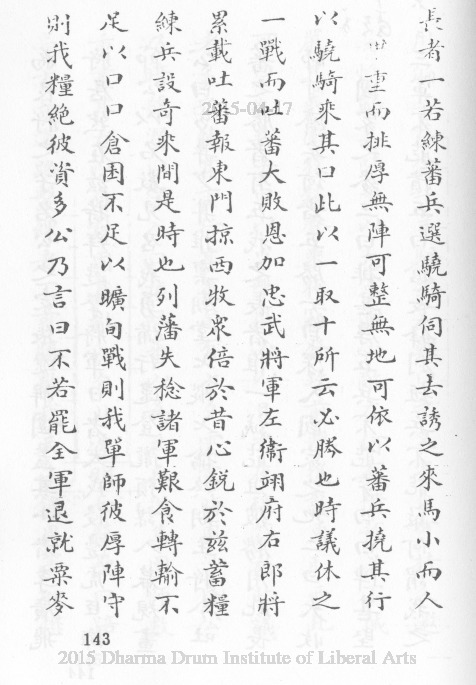 長者一若練蕃兵選驍騎伺其去誘之來馬小而人
重而排厚無陣可整無地可依以蕃兵撓其行
以驍騎乘其口此以一取十所云必勝也時議休之
一戰而吐蕃大敗恩加忠武將軍左衛翊府右郎將
累載吐蕃報東門掠西牧衆倍於昔心鋭於兹蓄糧
練兵設奇乘間是時也列藩失稔諸軍艱食轉輸不
足以口口倉囷不足以曠旬戰則我單師彼厚陣守
則我糧絶彼資多公乃言曰不若罷全軍退就粟麥
143
2015 Dharma Drum Institute of Liberal Arts